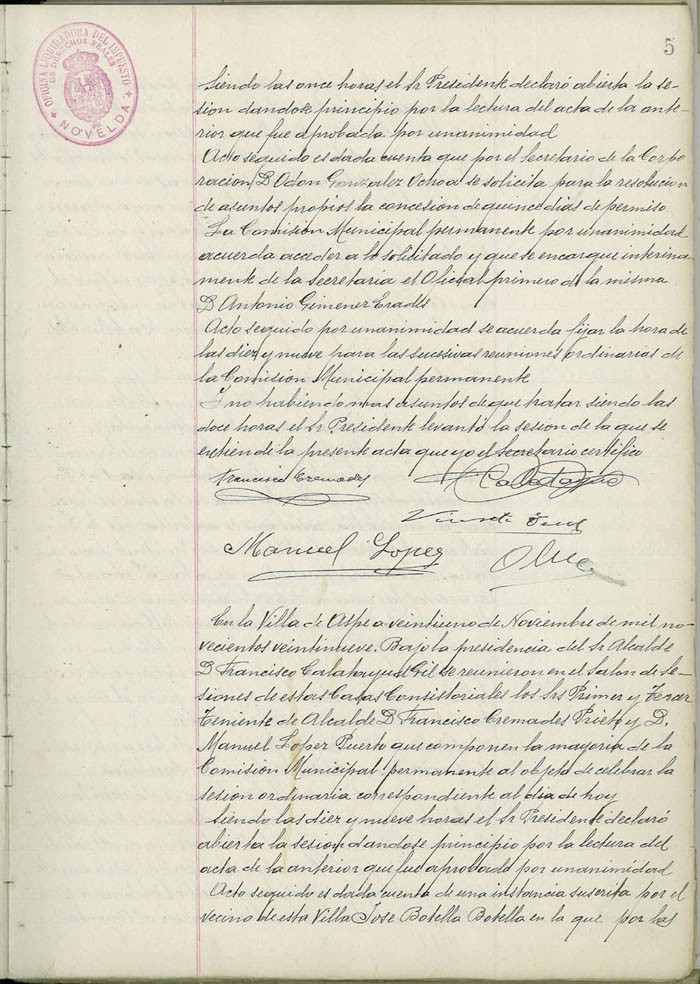 5
OFICINA LIQUIDADORA DEL IMPUESTO
DE DERECHOS REALES
NOVELDA
Siendo las once horas el Sr Presidente declaró abierta la se-
sion dandose principio por la lectura del acta de la ante-
rior que fue aprobada por unanimidad
Acto seguido es dada cuenta que por el Secretario de la Corpo
racion D. Odon Gonzalez Ochoa se solicita para la resolucion
de asuntos propios la concesion de quince dias de permiso
La Comision Municipal permanente por unanimidad
acuerda acceder a lo solicitado y que se encargue interina-
mente de la Secretaria el Oficial primero de la misma
D Antonio Gimener Eradés
Acto seguido por unanimidad se acuerda fijar la hora de
las diez y nueve para las sucesivas reuniones ordinarias de
la Comision Municipal permanente
I no habiendo mas asuntos de que tratar siendo las
doce horas el Sr Presidente levantó la sesion de la que se
extiende la presente acta que yo el Secretario certifico
Francisco Cremades
Calatayud
Manuel Lopez
En la Villa de Aspe a veintiuno de Noviembre de mil no-
vecientos veintinueve. Bajo la presidencia del Sr Alcalde
D Francisco Calatayud Gil se reunieron en el Salon de Se-
siones de estas Casas Consistoriales los Srs Primer y Tercer
Teniente de Alcalde D Francisco Cremades Prieto y D.
Manuel Lopez Puerto que componen la mayoria de la
Comision Municipal permanente al objeto de celebrar la
sesion ordinaria correspondiente al dia de hoy
Siendo las diez y nueve horas el Sr Presidente declaró
abierta la sesion dandose principio por la lectura del
acta de la anterior que fue aprobada por unanimidad
Acto seguido es dada cuenta de una instancia suscrita por el
vecino de esta Villa Jose Botella Botella en la que por las